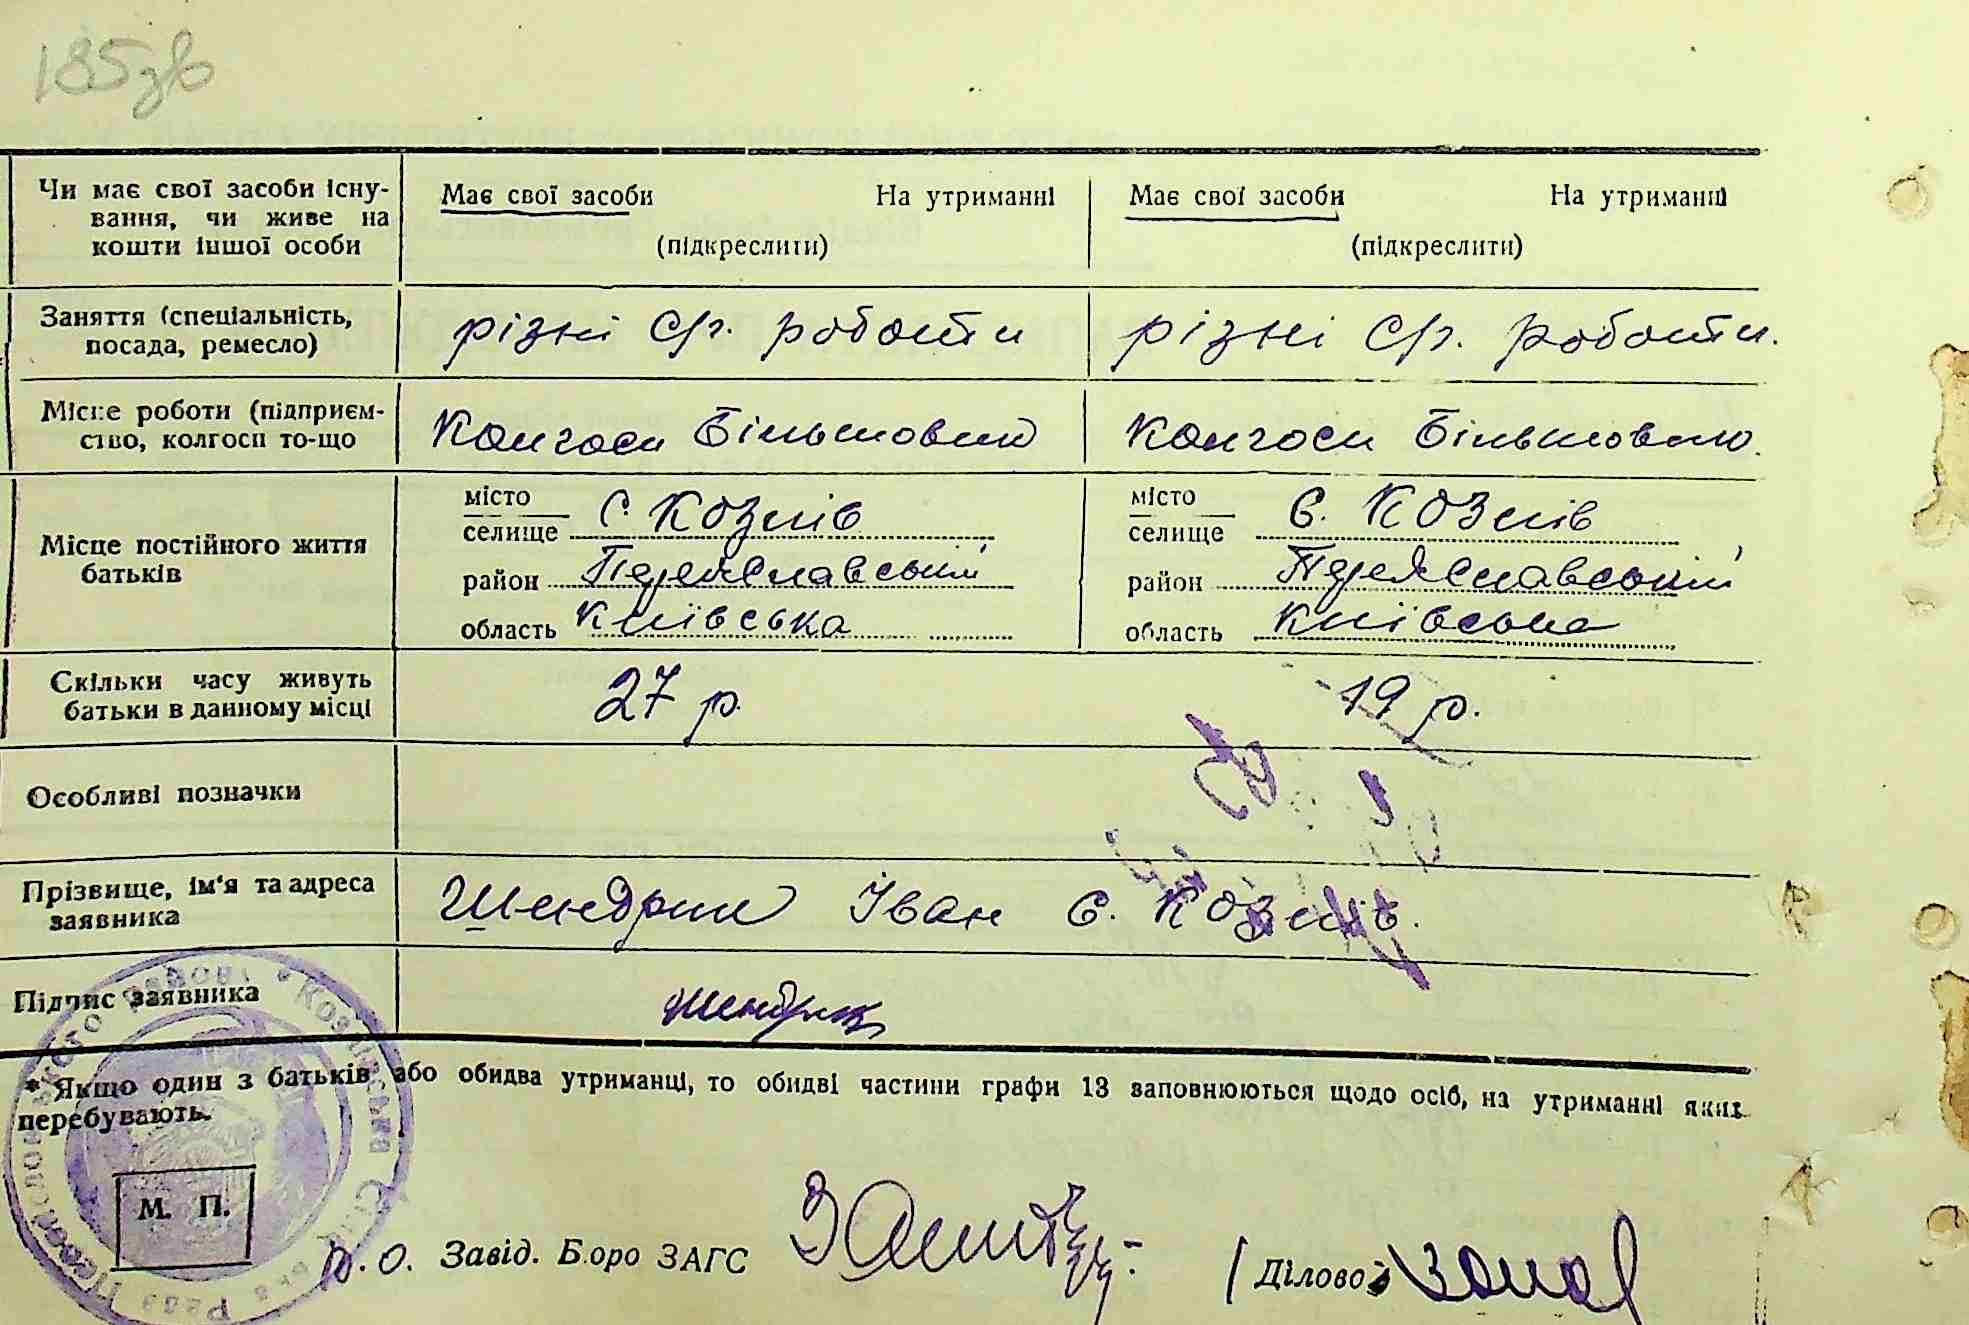 185зв
Чи має свої засоби існу-
вання, чи живе на
кошти іншої особи
Має свої засоби На утриманні
(підкреслити)
Має свої засоби На утриманні
(підкреслити)
Заняття (спеціальність,
посада, ремесло)
різні с/г. роботи
різні с/г. роботи.
Місце роботи (підприєм-
ство, колгосп то-що
Колгосп Більшовик
Колгосп Більшовик.
Місце постійного життя
батьків
місто
селище с. Козлів
район Переяславський
область Київська
місто
селище с. Козлів
район Переяславський
область Київська
Скільки часу живуть
батьки в данному місці
27 р.
19 р.
Особливі позначки
Прізвище, ім'я та адреса
заявника
Шендрик Іван с. Козлів.
Підпис заявника
Шендрик
* Якщо один з батьків або обидва утриманці, то обидві частини графи 13 заповнюються щодо осіб, на утриманні яких
перебувають.
М. П.
р. О. Завід. Бюро ЗАГС
Діловод